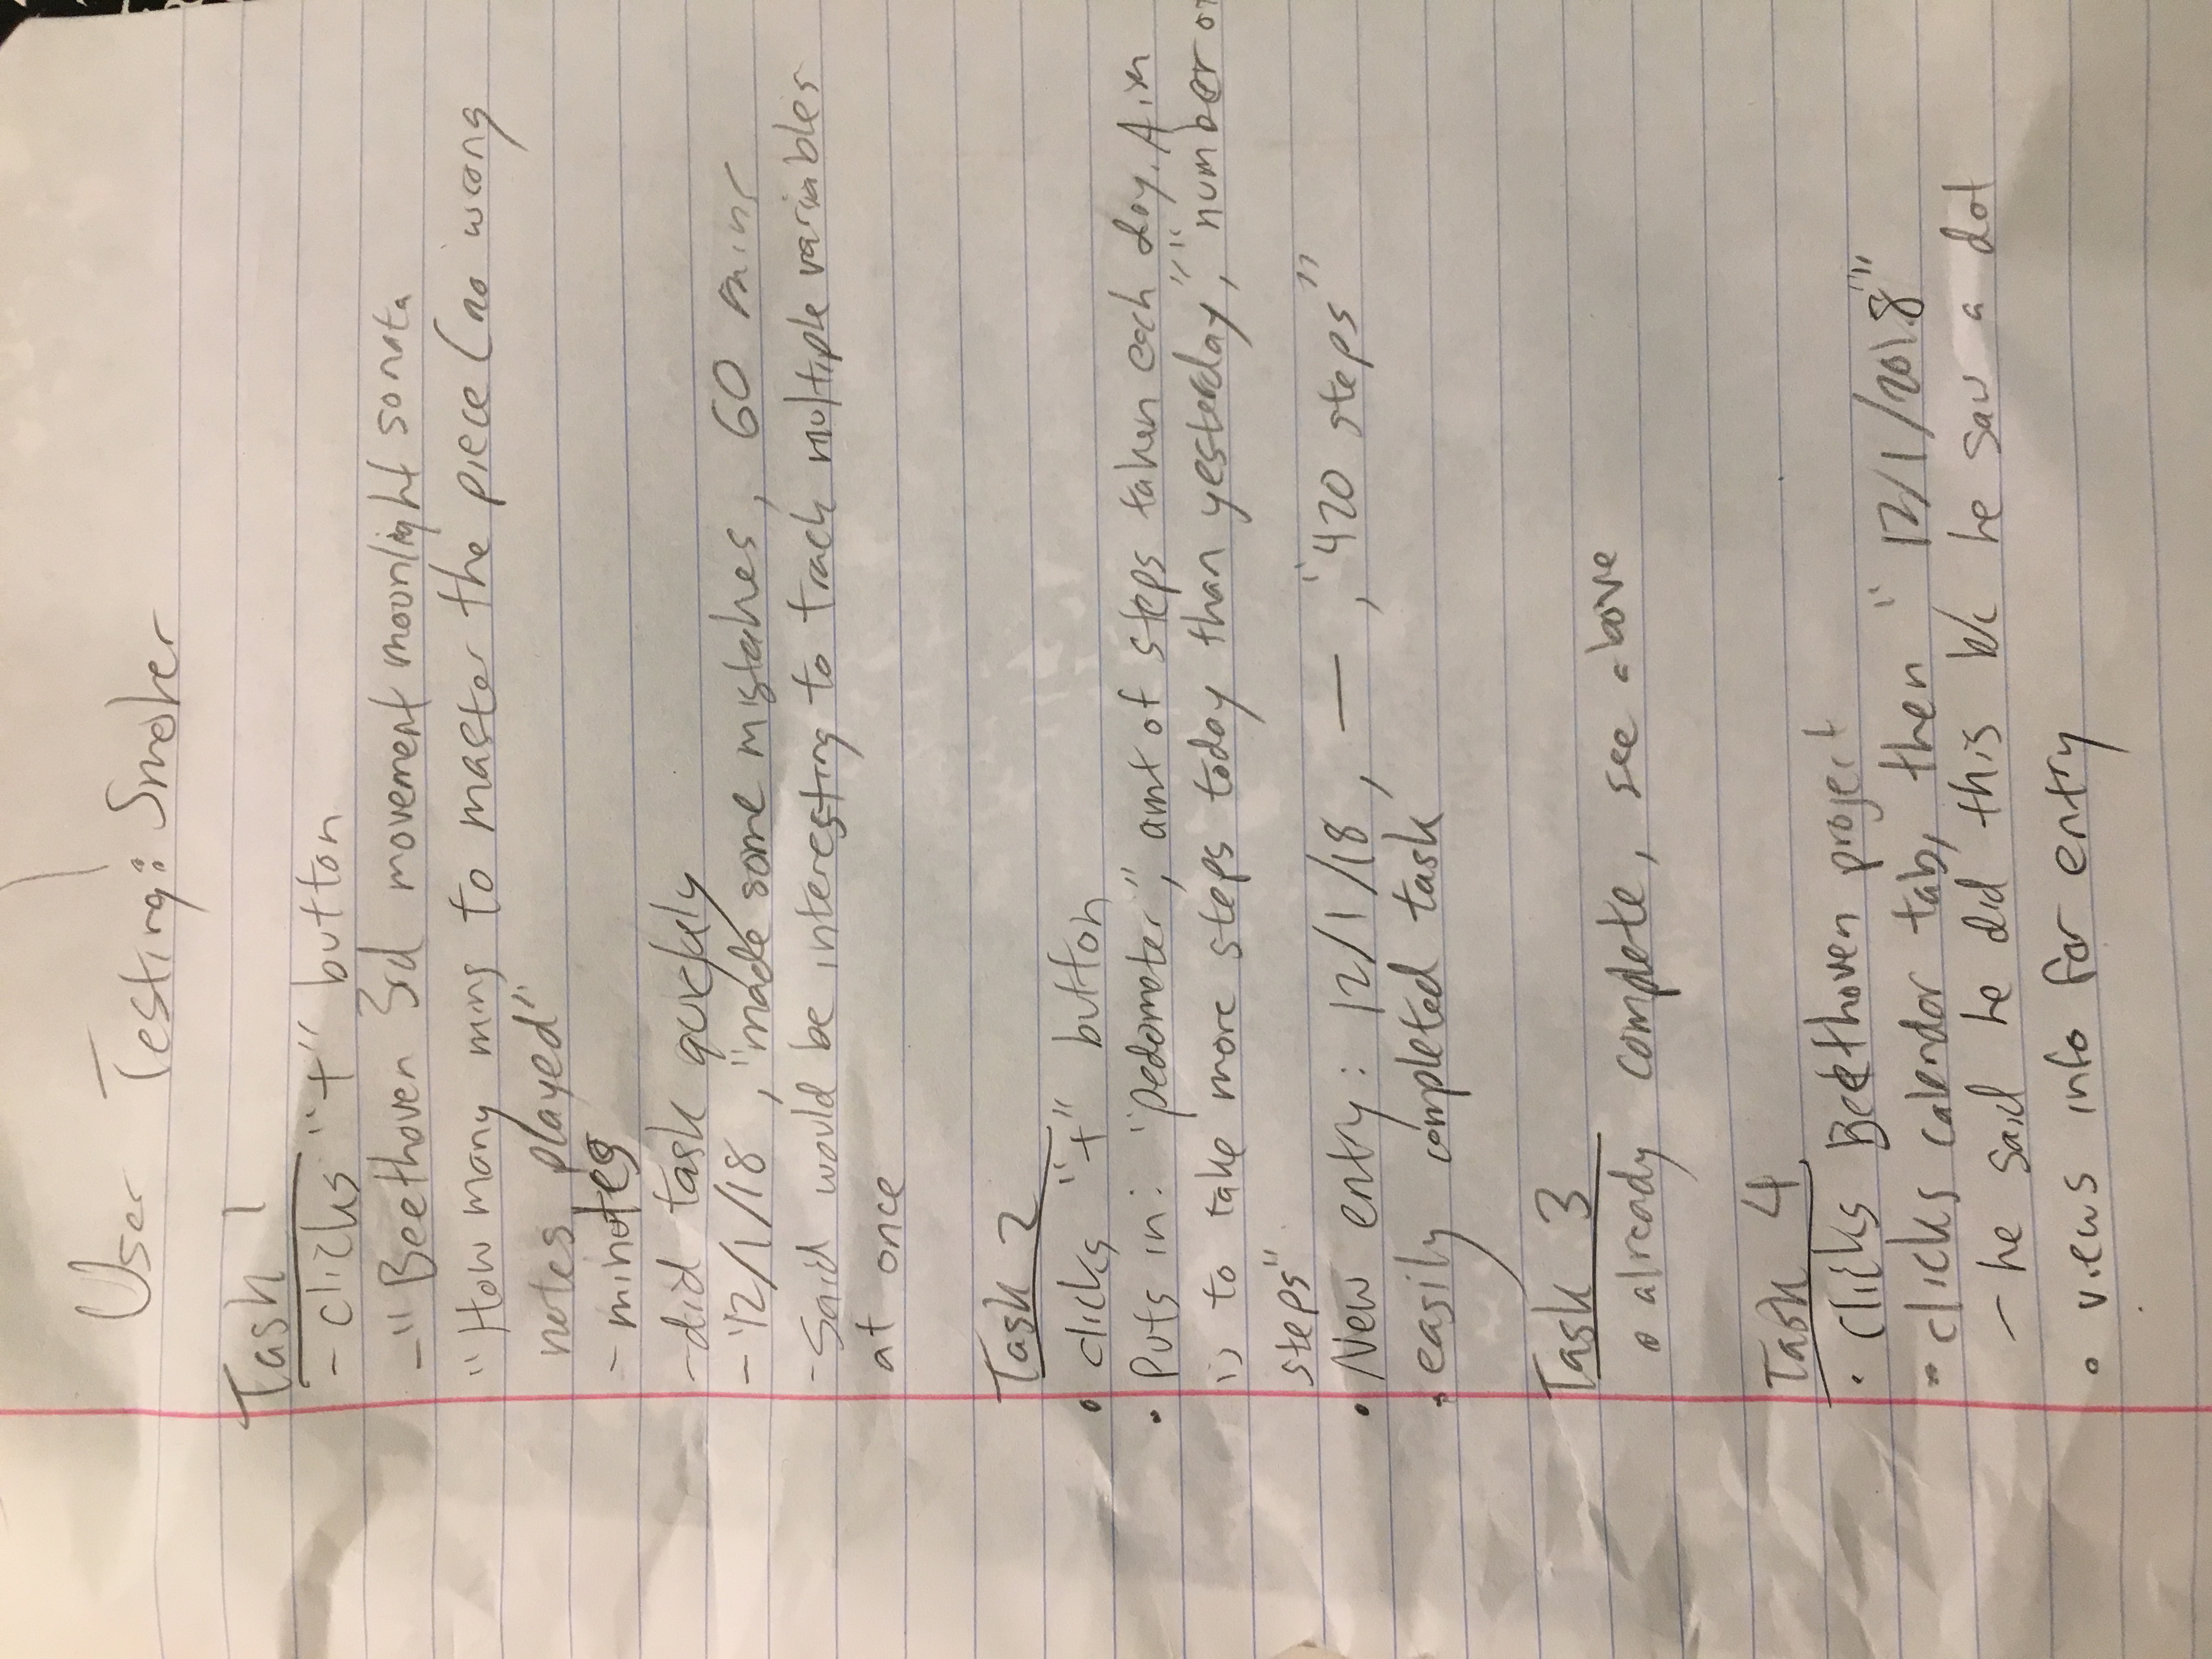 User Testing: Smoker
Task 1
- clicks "+" button
- "Beethoven 3rd movement moonlight sonata
"How many mins to master the piece (no wrong
notes played"
- minutes
- did task quickly
- 12/1/18 , "made some mistakes, 60 mins
- Said would be interesting to track multiple variables
at once
Task 2
• clicks "+" button
• Puts in: "pedometer", amt of steps taken each day. Aim
is to take more steps today than yesterday", "number of
steps"
• New entry: 12/1/18, — , "420 steps"
• easily completed task
Task 3
• already complete, see above
Task 4
• clicks Beethoven project
• clicks calendar tab, then "12/1/2018"
- he said he did this b/c he saw a dot
• views info for entry